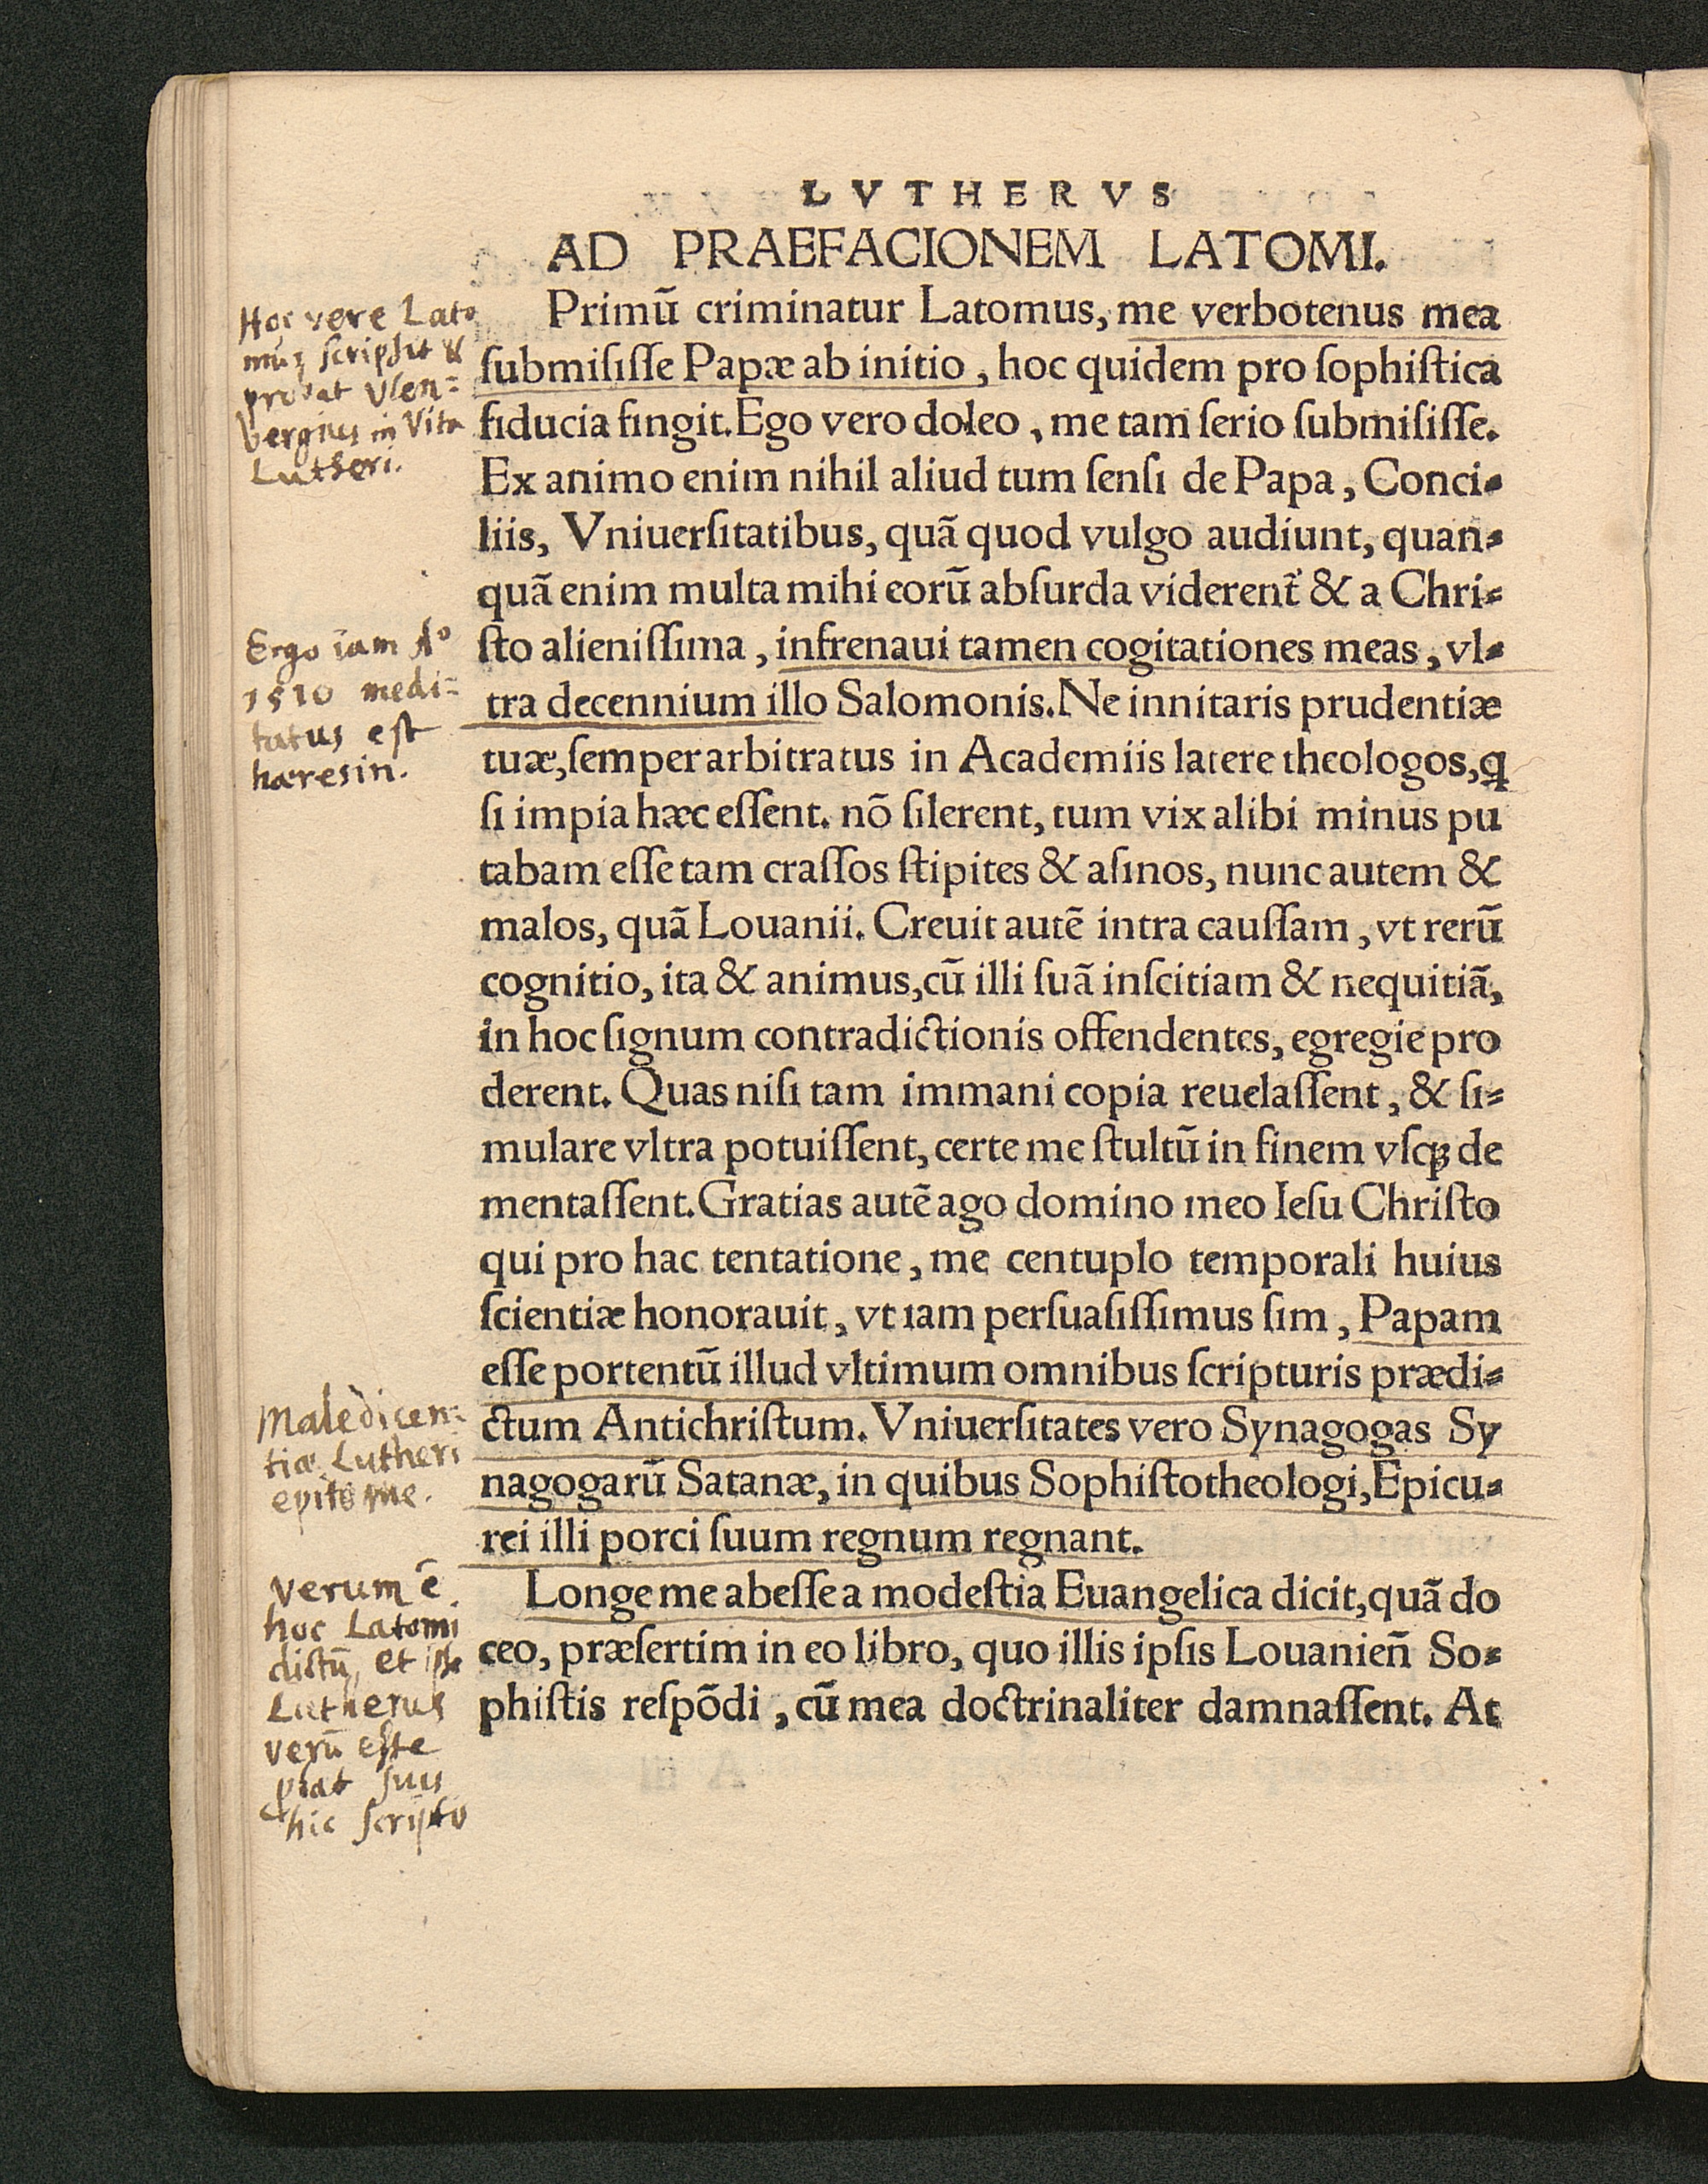 LVTHERVS
AD PRAEFACIONEM LATOMI.
Primũ criminatur Latomus, me verbotenus mea
ſubmiſiſſe Papæ ab initio, hoc quidem pro ſophiſtica
fiducia fingit. Ego vero doleo, me tam ſerio ſubmiſiſſe.
Ex animo enim nihil aliud tum ſenſi de Papa, Conci⸗
liis, Vniuerſitatibus, quã quod vulgo audiunt, quan⸗
quã enim multa mihi eorũ abſurda viderent᷑ & a Chri⸗
ſto alieniſſima, infrenaui tamen cogitationes meas, vl⸗
tra decennium illo Salomonis. Ne innitaris prudentiæ
tuæ, ſemper arbitratus in Academiis latere theologos, ꝗ
ſi impia hæc eſſent. nõ ſilerent, tum vix alibi minus pu
tabam eſſe tam craſſos ſtipites & aſinos, nunc autem &
malos, quã Louanii. Creuit autẽ intra cauſſam, vt rerũ
cognitio, ita & animus, cũ illi ſuã inſcitiam & nequitiã,
in hoc ſignum contradictionis offendentes, egregie pro
derent. Quas niſi tam immani copia reuelaſſent, & ſi⸗
mulare vltra potuiſſent, certe me ſtultũ in finem vſqꝫ de
mentaſſent. Gratias autẽ ago domino meo Ieſu Chriſto
qui pro hac tentatione, me centuplo temporali huius
ſcientiæ honorauit, vt iam perſuaſiſſimus ſim, Papam
eſſe portentũ illud vltimum omnibus ſcripturis prædi⸗
ctum Antichriſtum. Vniuerſitates vero Synagogas Sy
nagogarũ Satanæ, in quibus Sophiſtotheologi, Epicu⸗
rei illi porci ſuum regnum regnant.
Longe me abeſſe a modeſtia Euangelica dicit, quã do
ceo, præſertim in eo libro, quo illis ipſis Louanieñ So⸗
phiſtis reſpõdi, cũ mea doctrinaliter damnaſſent. At
Hoc vere Lato
mus ſcripſit &
probat Vlen⸗
bergius in Vita
Lutheri.
Ergo iam Aº
1510 medi⸗
tatus eſt
hæresin.
Maledicen⸗
tiæ Lutheri
epitome.
Verum ẽ
hoc Latomi
dictũ, et ipſe
Lutherus
verũ eſſe
ꝓbat ſuis
hic ſcriptis